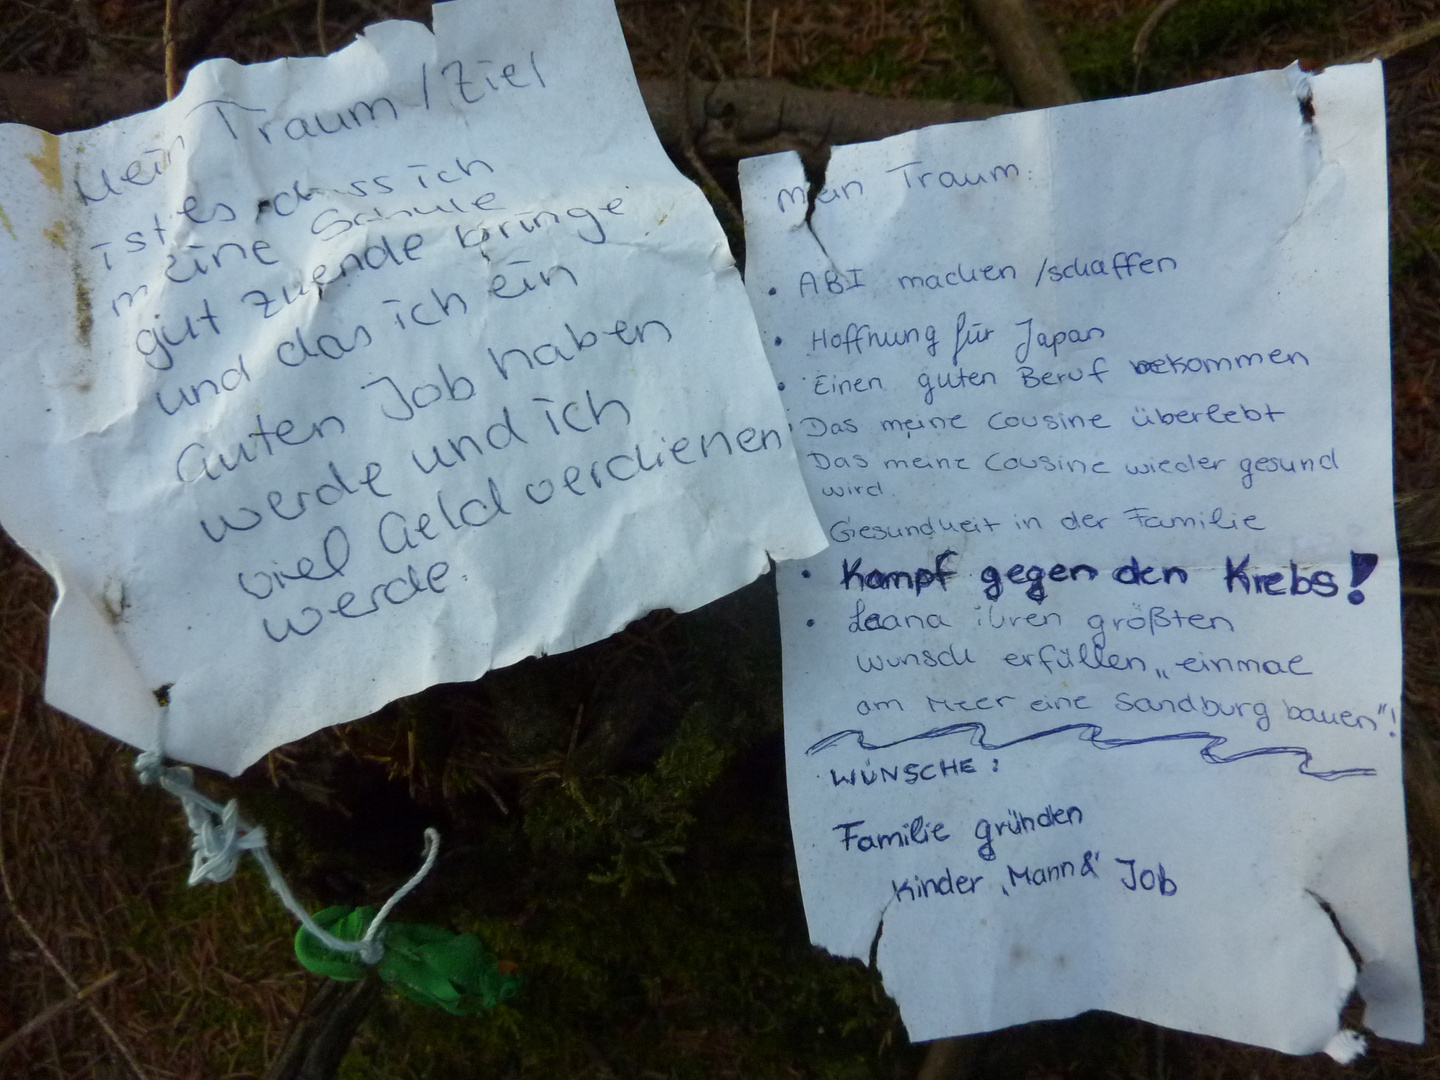 Mein Traum / Ziel
ist es dass ich
meine Schule
gut zuende bringe
und das ich ein
Guten Job haben
werde und ich
viel Geld verdienen
werde.
Mein Traum:
• ABI machen / schaffen
• Hoffnung für Japan
• Einen guten Beruf bekommen
• Das meine Cousine überlebt
Das meine Cousine wieder gesund
wird.
Gesundheit in der Familie
• Kampf gegen den Krebs!
• Leana ihren größten
Wunsch erfüllen „einmal
am Meer eine Sandburg bauen"!
WÜNSCHE:
Familie gründen
Kinder, Mann & Job